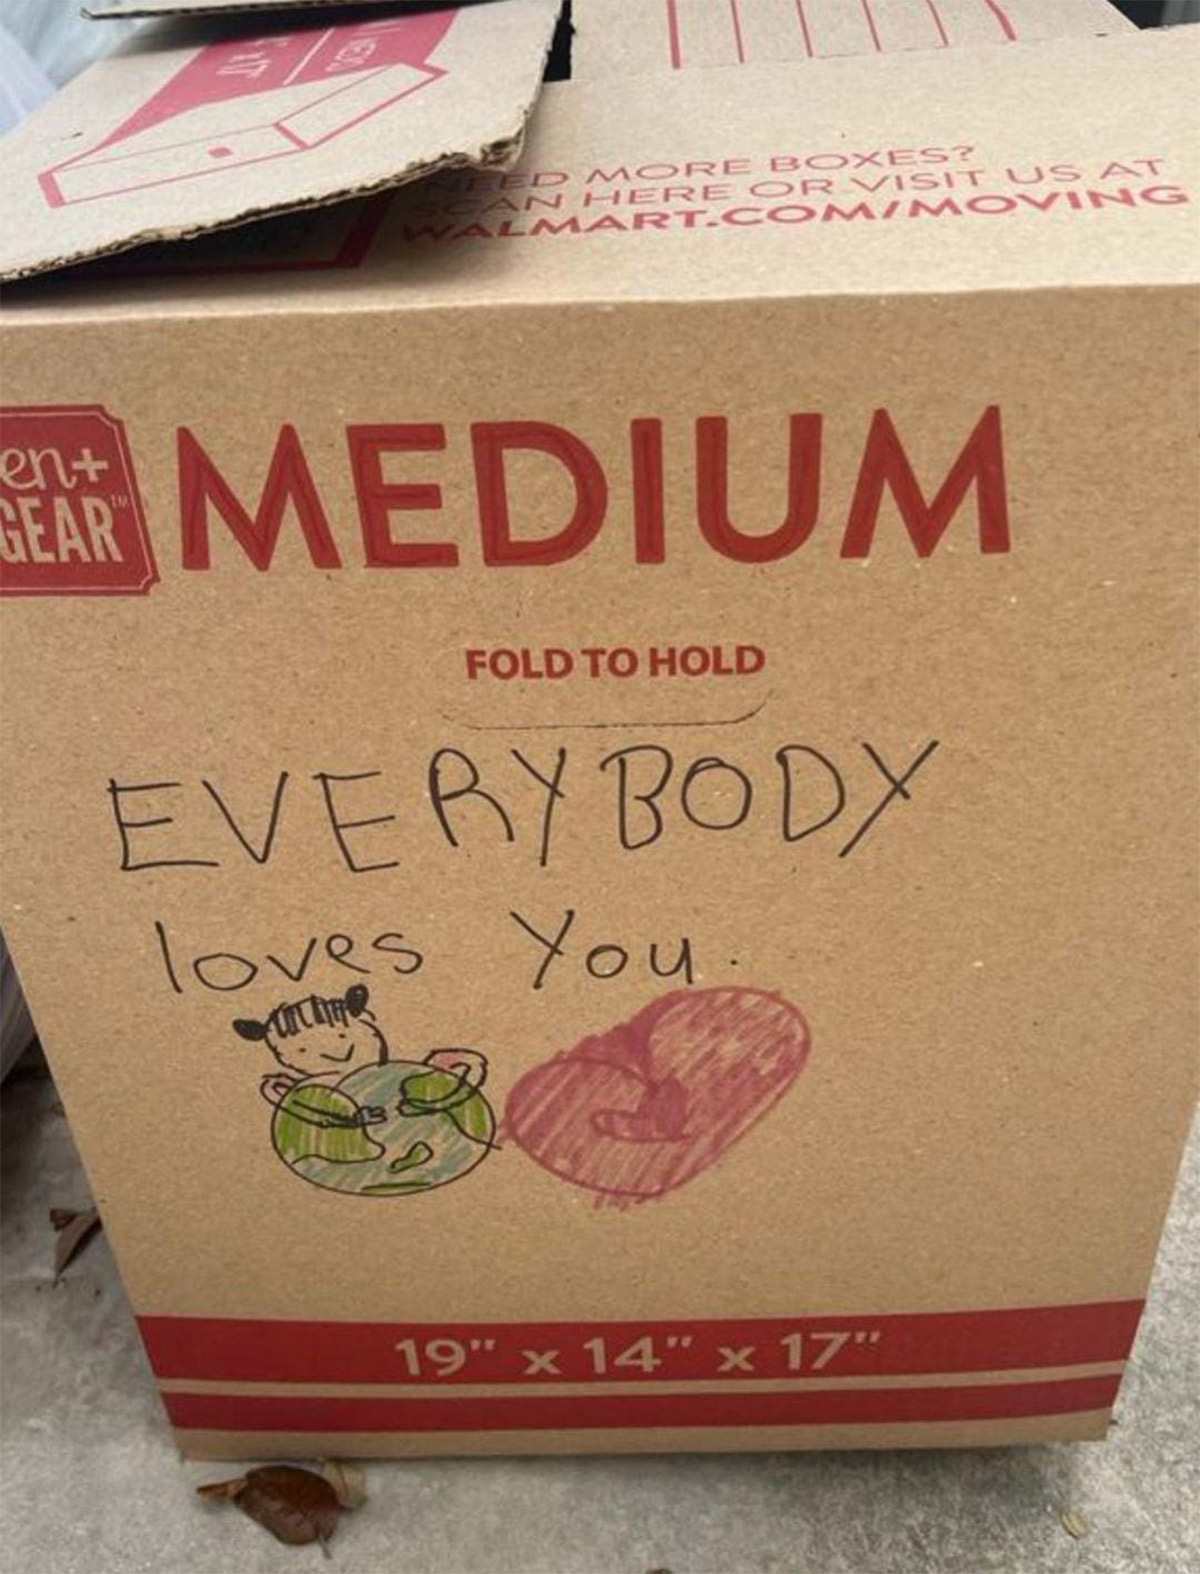 NEED MORE BOXES?
SCAN HERE OR VISIT US AT
WALMART.COM/MOVING
en+
GEAR™
MEDIUM
FOLD TO HOLD
EVERYBODY
loves You.
19" x 14" x 17"